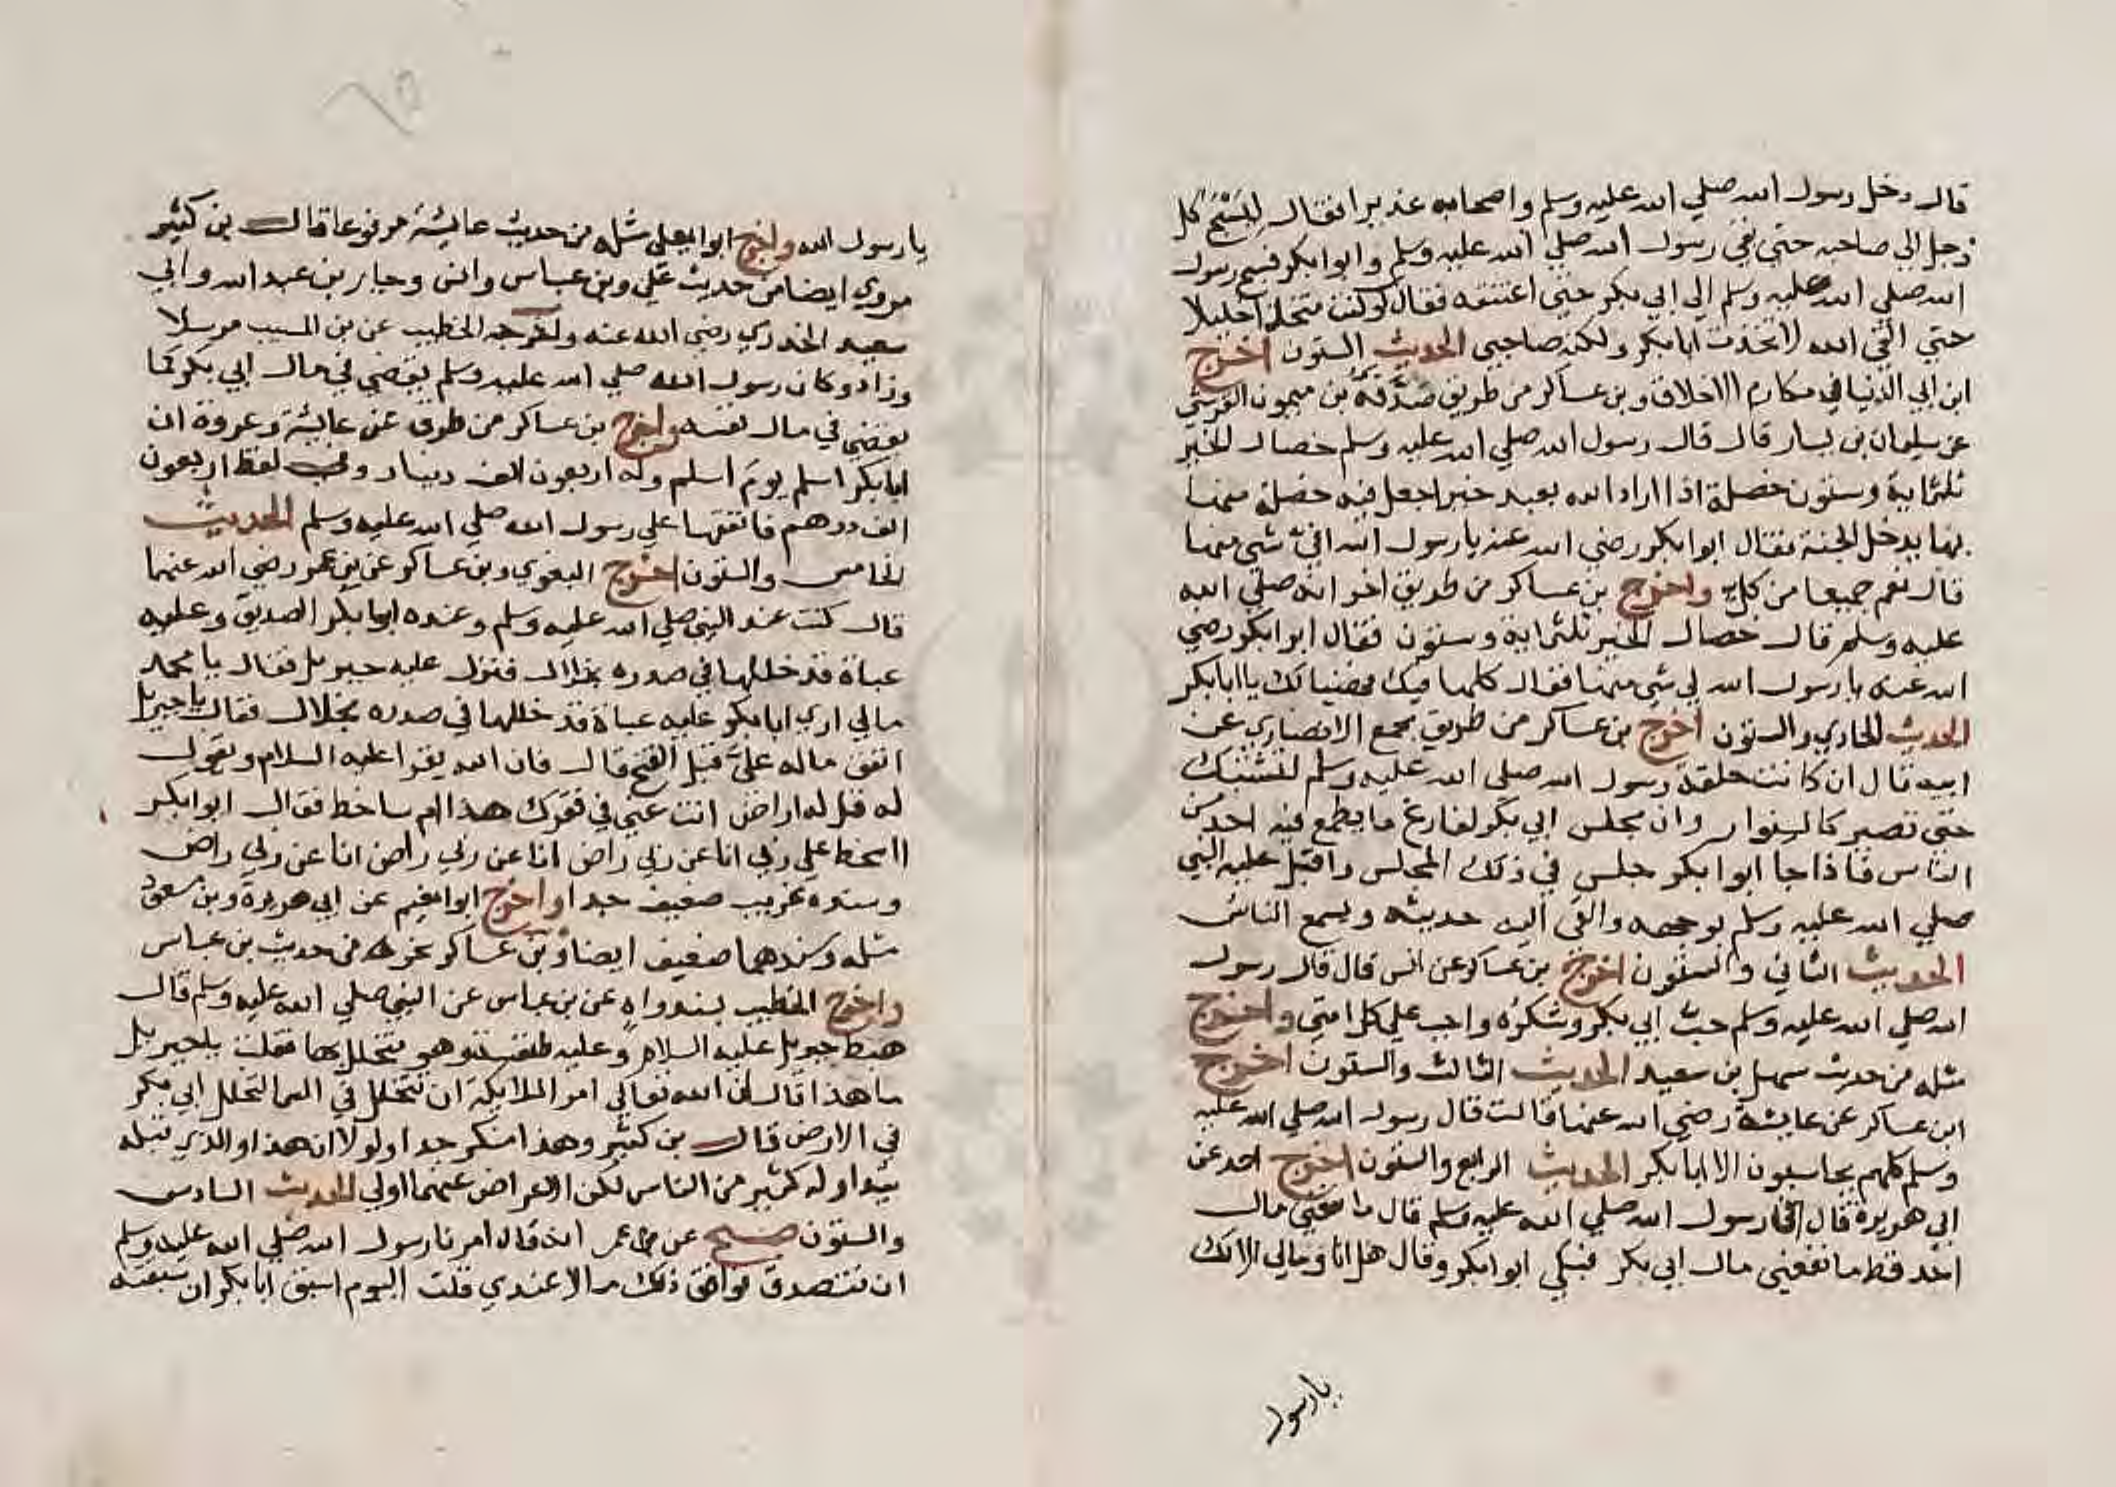 قال دخل رسول الله صلي الله عليه وسلم واصحابه غديرا فقال ليسبح كل
رجل الي صاحبه حتي بقي رسول الله صلي الله عليه وسلم وابوابكر فسبح رسول
الله صلي الله عليه وسلم الي ابي بكر حتي اعتنقه فقال لو كنت متخذا خليلا
حتي القي الله لاتخذت ابابكر ولكنه صاحبي الحديث الستون اخرج
ابن ابي الدنيا في مكارم الاخلاق وبن عساكر من طريق صدقة بن ميمون القرشي
عن سليمان بن يسار قال قال رسول الله صلي الله عليه وسلم خصال الخير
ثلثماية وستون خصلة اذا اراد الله بعبد خيرا جعل فيه خصلة منها
بها يدخل الجنة فقال ابوابكر رضي الله عنه يا رسول الله افيّ شي منها
قال نعم جميعا من كل واخرج بن عساكر من طريق اخر انه صلي الله
عليه وسلم قال خصال الخير ثلثماية وستون فقال ابوابكر رضي
الله عنه يا رسول الله لي شي منها فقال كلها فيك فهنيا لك يا ابابكر
الحديث الحادي والستون اخرج بن عساكر من طريق مجمع الانصاري عن
ابيه قال ان كانت حلقة رسول الله صلي الله عليه وسلم لتشتبك
حتي تصير كالسوار وان مجلس ابي بكر لفارغ ما يطمع فيه احد من
الناس فاذا جا ابوابكر جلس في ذلك المجلس واقبل عليه النبي
صلي الله عليه وسلم بوجهه والقي اليه حديثه ويسمع الناس
الحديث الثاني والستون اخرج بن عساكر عن انس قال قال رسول
الله صلي الله عليه وسلم حب ابي بكر وشكره واجب علي كل امتي واخرج
مثله من حديث سهل بن سعيد الحديث الثالث والستون اخرج
ابن عساكر عن عايشة رضي الله عنها قالت قال رسول الله صلي الله عليه
وسلم كلهم يحاسبون الا ابابكر الحديث الرابع والستون اخرج احد عن
ابي هريرة قال رسول الله صلي الله عليه وسلم قال ما نفعني مال
احد قط ما نفعني مال ابي بكر فبكي ابوابكر وقال هل انا ومالي الا لك
يا رسول
يا رسول الله واخرج ابوايعلي مثله من حديث عايشة مرفوعا قال بن كثير
مروي ايضا من حديث علي وبن عباس وانس وجابر بن عبد الله وابي
سعيد الخدري رضي الله عنه واخرجه الخطيب عن بن المسيب مرسلا
وزاد وكان رسول الله صلي الله عليه وسلم يقضي في مال ابي بكر كما
يقضي في مال نفسه واخرج بن عساكر من طرق عن عايشة وعروة ان
ابابكر اسلم يوم اسلم وله اربعون الف دينار وفي لفظ اربعون
الف درهم فانفقها علي رسول الله صلي الله عليه وسلم الحديث
الخامس والستون اخرج البغوي وبن عساكر عن بن عمر رضي الله عنهما
قال كنت عند النبي صلي الله عليه وسلم وعنده ابوابكر الصديق وعليه
عباة قد خللها في صدره بخلال فنزل عليه جبريل فقال يا محمد
مالي اري ابابكر عليه عباة قد خللها في صدره بخلال فقال يا جبريل
انفق ماله عليّ قبل الفتح قال فان الله يقرا عليه السلام ويقول
له قل له اراض انت عني في فقرك هذا ام ساخط فقال ابوابكر
ااسخط علي ربي انا عن ربي راض انا عن ربي راض انا عن ربي راض
وسنده غريب ضعيف جدا واخرج ابوانعيم عن ابي هريرة وبن مسعود
مثله وسندهما ضعيف ايضا وبن عساكر نحوه من حديث بن عباس
واخرج الخطيب بسند واه عن بن عباس عن النبي صلي الله عليه وسلم قال
هبط جبريل عليه السلام وعليه طنفسة وهو متخلل بها فقلت يا جبريل
ما هذا قال ان الله تعالي امر الملايكة ان تتخلل في السما لتخلل ابي بكر
في الارض قال بن كثير وهذا منكر جدا ولولا ان هذا والذي قبله
يتداوله كثير من الناس لكن الاعراض عنهما اولي الحديث السادس
والستون صحيح عن عمر انه قال امرنا رسول الله صلي الله عليه وسلم
ان نتصدق فوافق ذلك مالا عندي قلت اليوم اسبق ابابكر ان سبقته